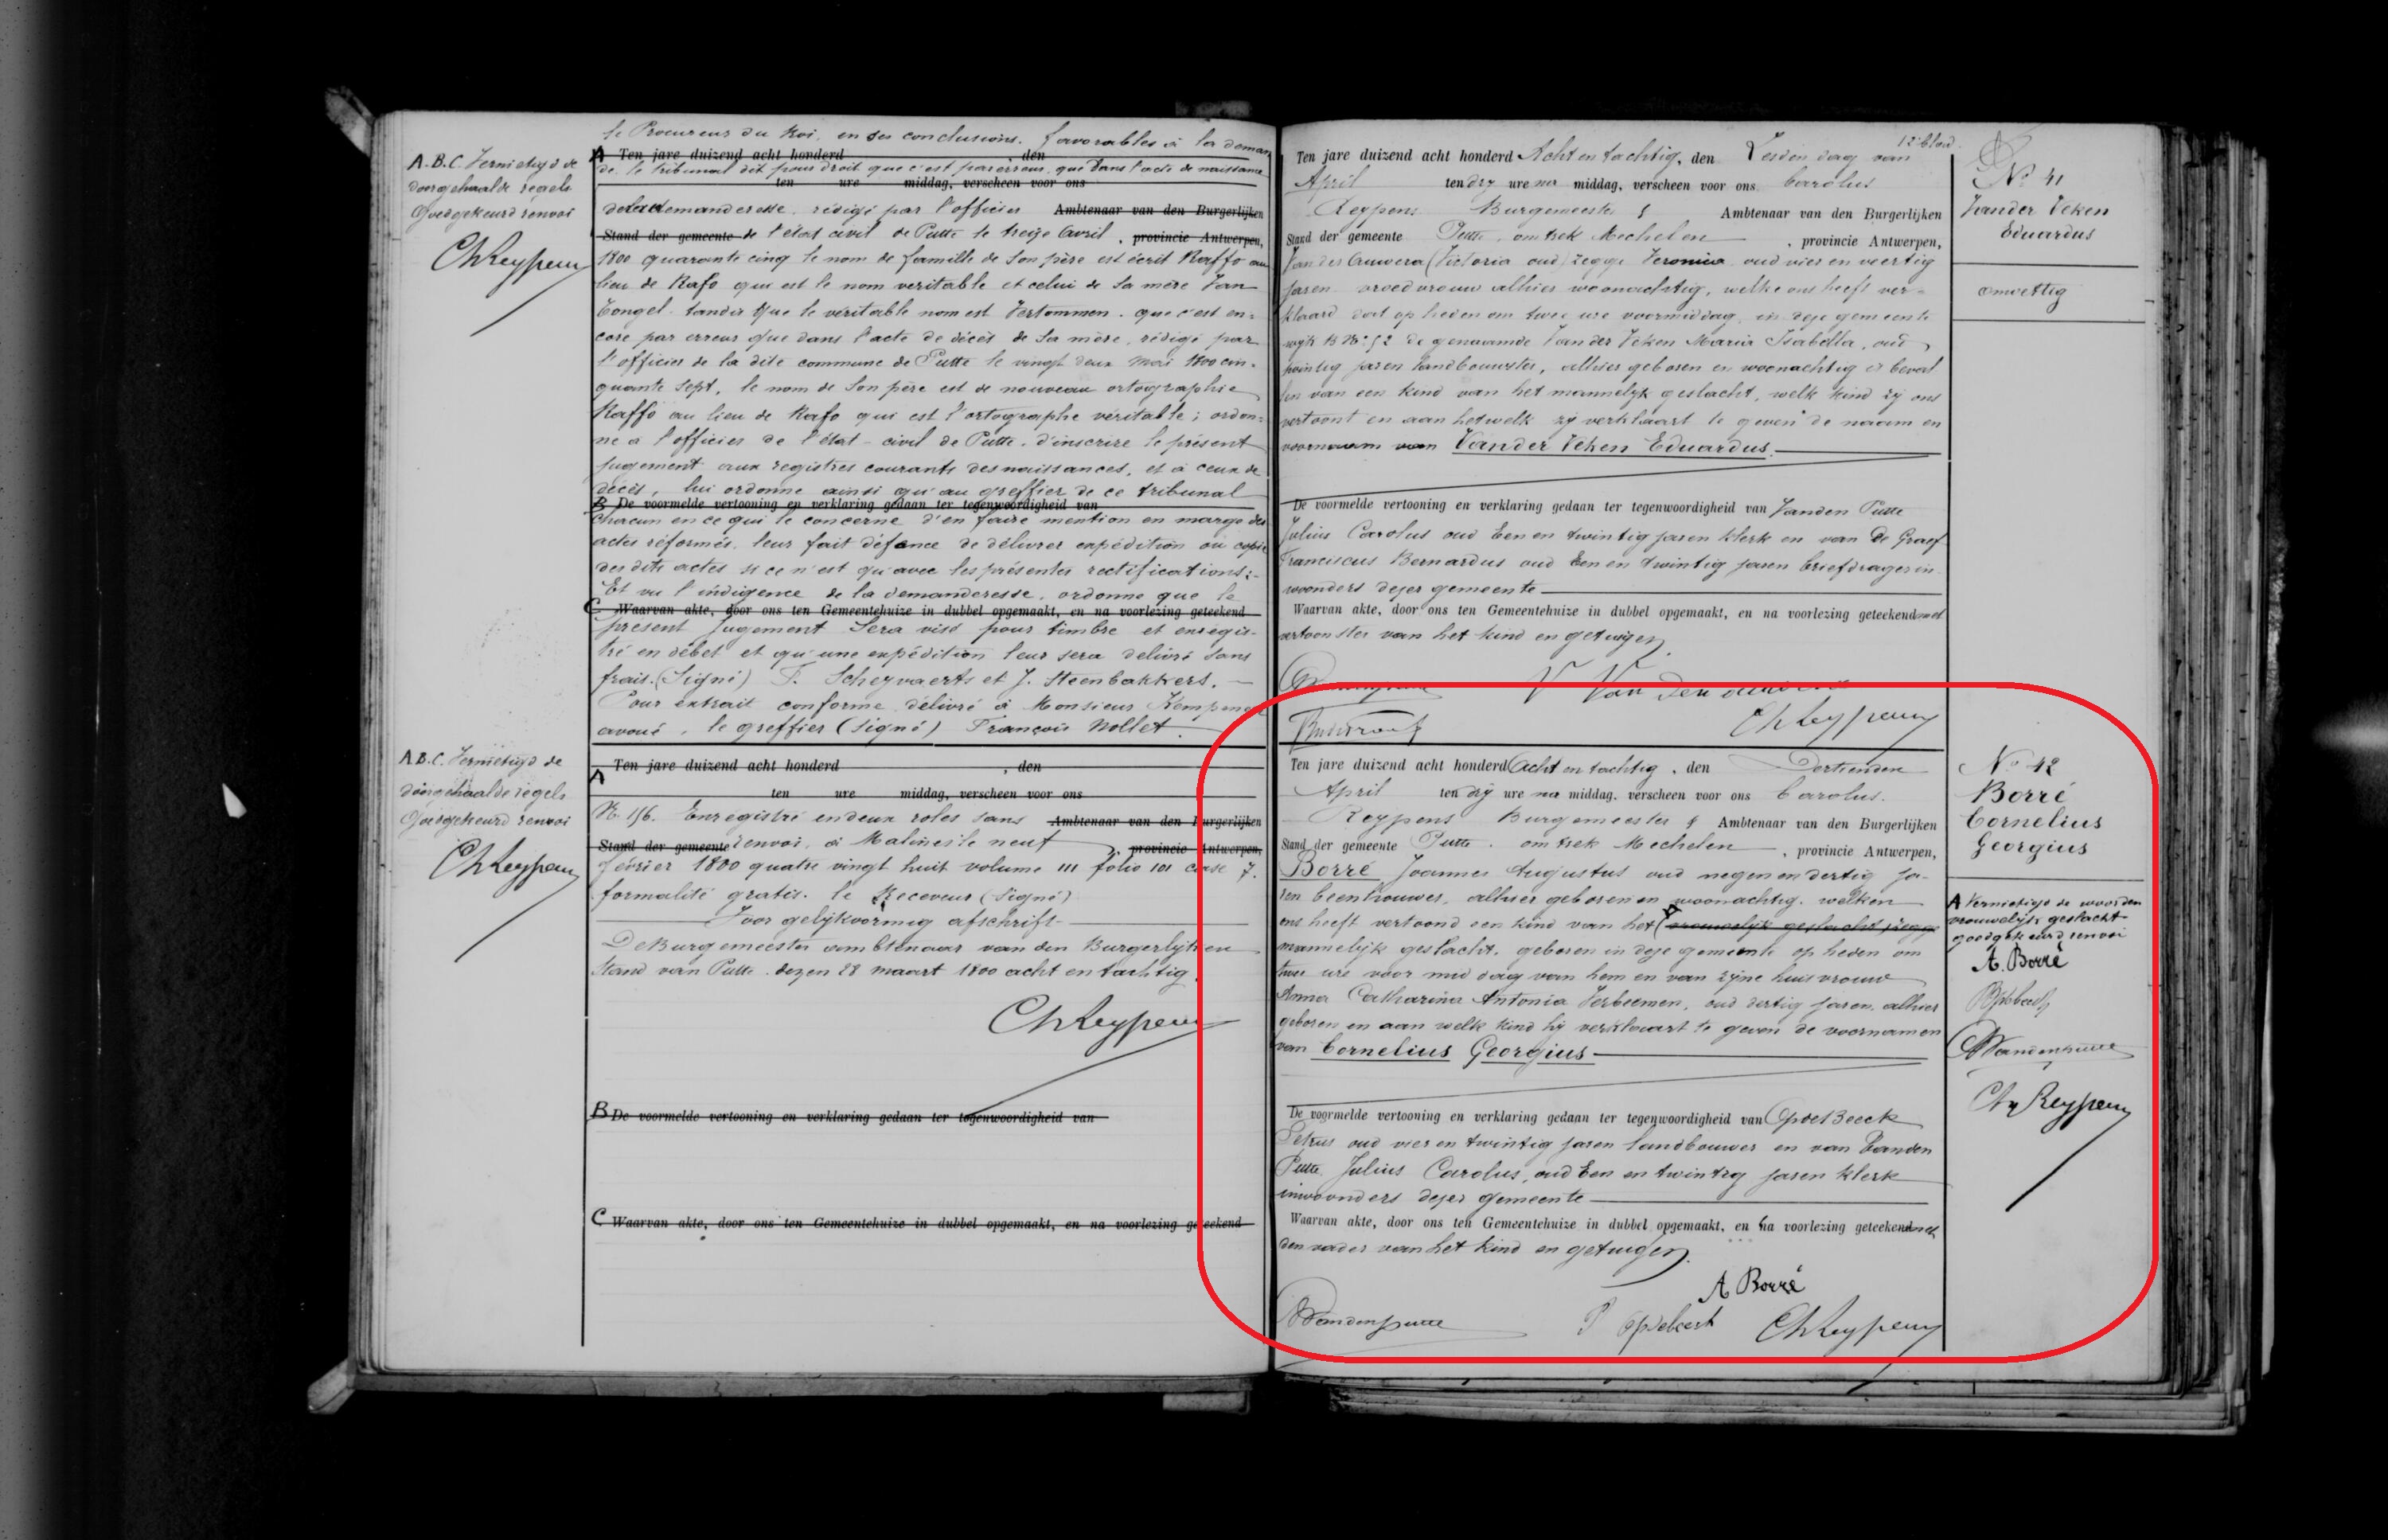 le Procureur du Roi, en ses conclusions favorables à la deman
A Ten jare duizend acht honderd , den
de. le tribunal dit pour droit que c'est par erreur que dans l'acte de naissance
ten ure middag, verscheen voor ons
de la demanderesse, rédigé par l'officier Ambtenaar van den Burgerlijken
Stand der gemeente de l'état civil de Putte le treize Avril , provincie Antwerpen,
1800 quarante cinq le nom de famille de son père est écrit Raffo au
lieu de Rafo qui est le nom veritable et celui de sa mère Van
Tongel tandis que le véritable nom est Vertommen. que c'est en-
core par erreur que dans l'acte de décès de sa mère, rédigé par
l'officier de la dite commune de Putte le vingt deux mai 1800 cin-
quante sept, le nom de son père est de nouveau ortographié
Raffo au lieu de Rafo qui est l'ortographe véritable; ordon-
ne à l'officier de l'état-civil de Putte d'inscrire le présent
jugement aux registres courants des naissances, et à ceux de
décès, lui ordonne ainsi qu'au greffier de ce tribunal
B De voormelde vertooning en verklaring gedaan ter tegenwoordigheid van
chacun en ce qui le concerne d'en faire mention en marge des
actes réformés, leur fait défence de délivrer expédition ou copie
des dits actes si ce n'est qu'avec les présentes rectifications:-
Et vu l'indigence de la demanderesse, ordonne que le
C Waarvan akte, door ons ten Gemeentehuize in dubbel opgemaakt, en na voorlezing geteekend
présent jugement sera visé pour timbre et enrégis-
tré en débet et qu'une expédition leur sera delivré sans
frais. (Signé) F. Scheyvaerts et J. Steenbakkers.
Pour extrait conforme délivré à Monsieur Kempenaer
avoué, le greffier (signé) François Nollet.
A.B.C. Vernietigd de
doorgehaalde regels
Goedgekeurd renvoi
Ch Reypens
A Ten jare duizend acht honderd , den
ten ure middag, verscheen voor ons
N. 156. Enregistré en deux roles sans Ambtenaar van den Burgerlijken
Stand der gemeente renvoi, à Malines le neuf , provincie Antwerpen,
février 1800 quatre vingt huit volume 111 folio 101 case 7.
formalité gratis. le Receveur (signé)
Voor gelijkvormig afschrift
De Burgemeester ambtenaar van den Burgerlyken
Stand van Putte dezen 28 maart 1800 acht en tachtig.
Ch Reypens
B De voormelde vertooning en verklaring gedaan ter tegenwoordigheid van
C Waarvan akte, door ons ten Gemeentehuize in dubbel opgemaakt, en na voorlezing geteekend
A.B.C. Vernietigd de
doorgehaalde regels
Goedgekeurd renvoi
Ch Reypens
12e blad.
Ten jare duizend acht honderd Acht en tachtig, den dag van
April ten dry ure na middag, verscheen voor ons Carolus
Reypens Burgemeester & Ambtenaar van den Burgerlijken
Stand der gemeente Putte. omtrek Mechelen , provincie Antwerpen,
Van der Auwera (Victoria oud) zegge Veronica oud vier en veertig
jaren vroedvrouw alhier woonachtig, welke ons heeft ver-
klaard dat op heden om twee ure voormiddag, in deze gemeente
wyk B No: 52 de genaamde Van der Veken Maria Isabella, oud
twintig jaren landbouwster, alhier geboren en woonachtig is beval
len van een kind van het mannelyk geslacht, welk kind zy ons
vertoont en aan hetwelk zy verklaart te geven de naam en
voornaam van Vander Veken Eduardus.
De voormelde vertooning en verklaring gedaan ter tegenwoordigheid van Vanden Putte
Julius Carolus oud Een en twintig jaren klerk en van De Graef
Franciscus Bernardus oud Een en twintig jaren briefdrager in
woonders dezer gemeente
Waarvan akte, door ons ten Gemeentehuize in dubbel opgemaakt, en na voorlezing geteekend met
vertoonster van het kind en getuigen.
Ch Reypens
No 41
Vander Veken
Eduardus
onwettig
Ten jare duizend acht honderd Acht en tachtig, den Dertienden
April ten dry ure na middag, verscheen voor ons Carolus.
Reypens Burgemeester & Ambtenaar van den Burgerlijken
Stand der gemeente Putte. omtrek Mechelen , provincie Antwerpen,
Borré Joannes Augustus oud negen en dertig ja-
ren beenhouwer, alhier geboren en woonachtig, welken
ons heeft vertoond een kind van het (vrouwelijk geslacht zegge
mannelijk geslacht, geboren in deze gemeente op heden om
twee ure voor mid dag van hem en van zyne huisvrouw
Anna Catharina Antonia Verbeemen, oud dertig jaren, alhier
geboren en aan welk kind hy verklaart te geven de voornamen
van Cornelius Georgius
De voormelde vertooning en verklaring gedaan ter tegenwoordigheid van Op de Beeck
Petrus oud vier en twintig jaren landbouwer en van Vanden
Putte Julius Carolus, oud Een en twintig jaren klerk
inwoonders dezer gemeente
Waarvan akte, door ons ten Gemeentehuize in dubbel opgemaakt, en na voorlezing geteekend met
den vader van het kind en getuigen.
A Borré
Vandenputte P Opdebeeck Ch Reypens
No 42
Borré
Cornelius
Georgius
A Vernietigd de woorden
vrouwelijk geslacht
goedgekeurd renvoi
A. Borré
Vandenputte
Ch Reypens